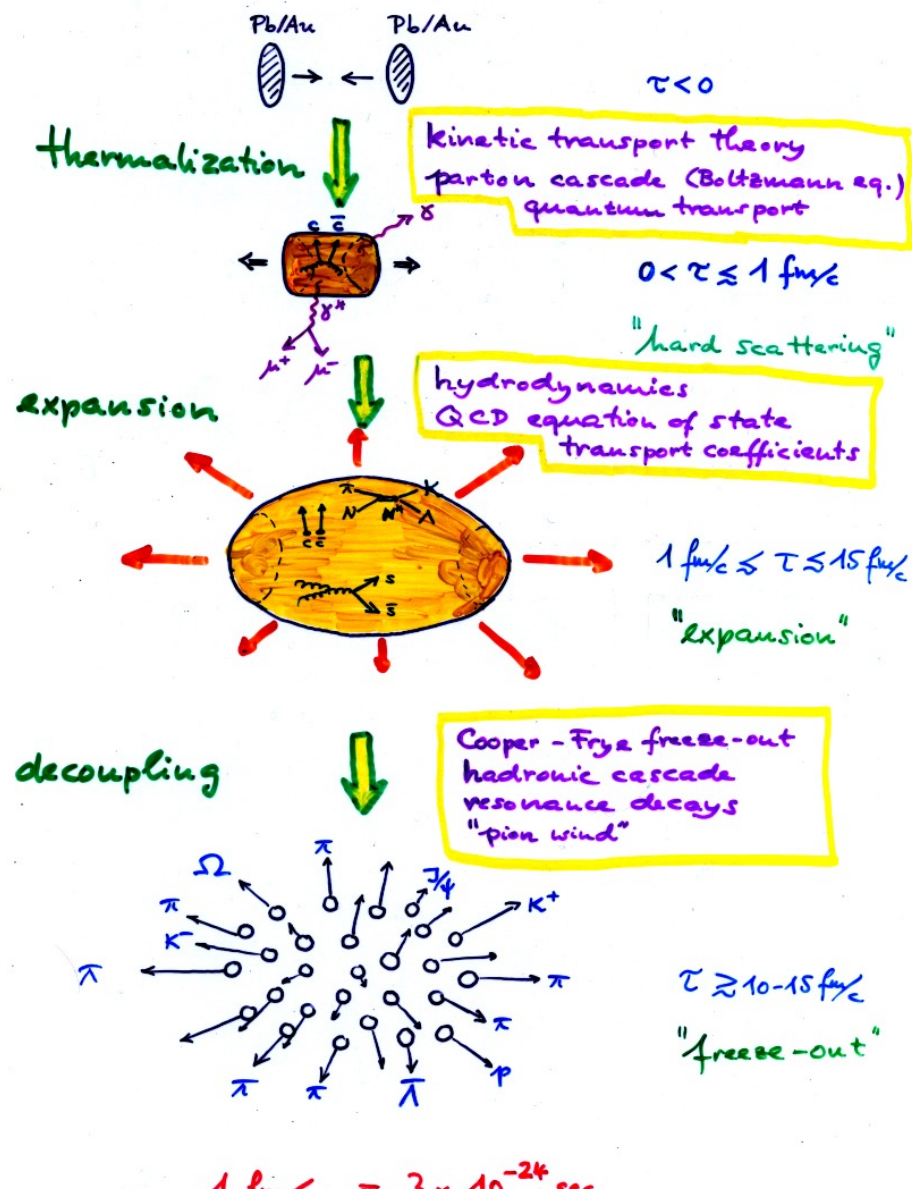 Pb/Au Pb/Au
τ < 0
thermalization
kinetic transport theory
parton cascade (Boltzmann eq.)
quantum transport
c c̄
γ
0 < τ ≲ 1 fm/c
γ*
μ⁺ μ⁻
"hard scattering"
expansion
hydrodynamics
QCD equation of state
transport coefficients
π K
N N* Λ
c c̄
s
s̄
1 fm/c ≲ τ ≲ 15 fm/c
"expansion"
decoupling
Cooper - Frye freeze-out
hadronic cascade
resonance decays
"pion wind"
Ω π J/ψ
π K⁺
K⁻
π π
τ ≳ 10-15 fm/c
π
"freeze-out"
π π Λ̄ p
1 fm/c = 3 × 10⁻²⁴ sec